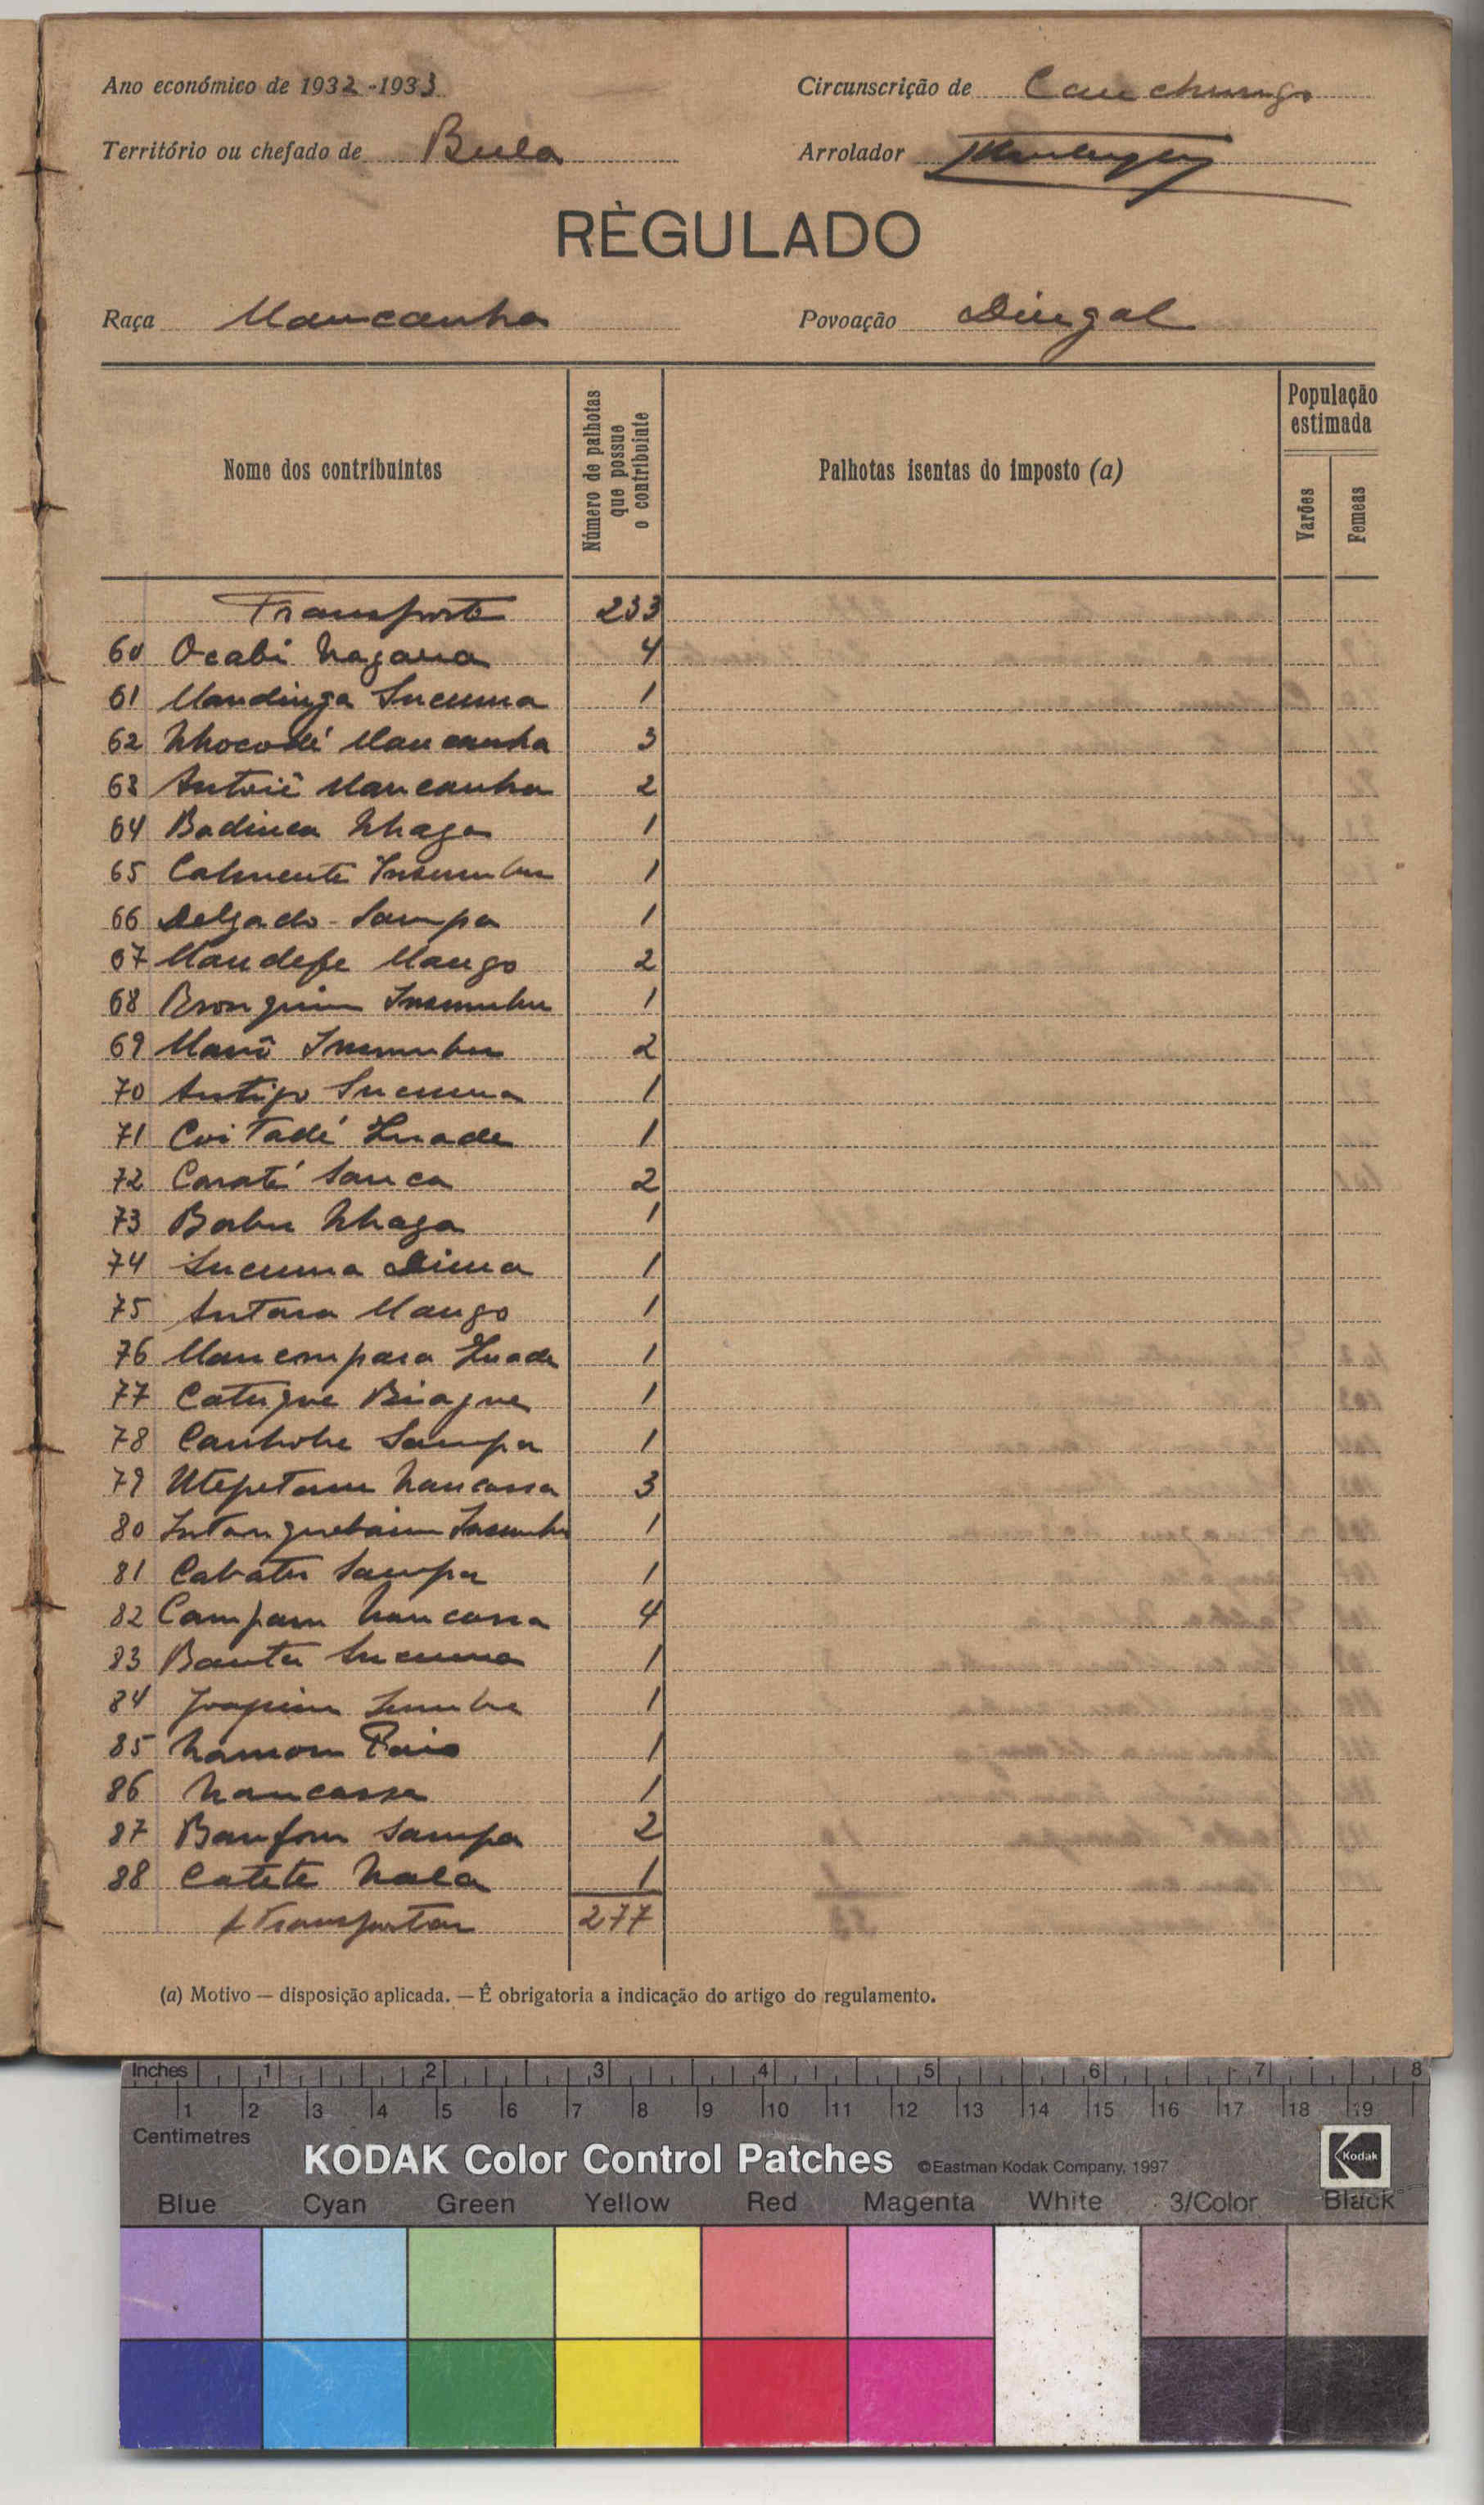 Ano económico de 1932-1933
Circunscrição de Canchungo
Território ou chefado de Bula
Arrolador
RÈGULADO
Raça Mancanha
Povoação Dingal
Nome dos contribuintes
Número de palhotas que possue o contribuinte
Palhotas isentas do imposto (a)
População estimada
Varões
Femeas
Transporte 233
60 Ocabi 4
61 Mandinga Sucuma 1
62 Nhocodé Mancanha 3
63 Mancanha 2
64 Badinca Nhaga 1
65 1
66 Delgado Sampa 1
67 Mango 2
68 1
69 2
70 Antigo Sucuma 1
71 Coitadé 1
72 Caraté Sanca 2
73 Babu Nhaga 1
74 Sucuma Dima 1
75 Antara Mango 1
76 1
77 Catuque Biague 1
78 Sampa 1
79 Nancassa 3
80 1
81 Cabatu Sampa 1
82 Campam Nancassa 4
83 Bantu Sucuma 1
84 Joaquim 1
85 1
86 Nancassa 1
87 Banfom Sampa 2
88 Catete Nala 1
A Transportar 277
(a) Motivo — disposição aplicada. — É obrigatoria a indicação do artigo do regulamento.
Inches 1 2 3 4 5 6 7 8
1 2 3 4 5 6 7 8 9 10 11 12 13 14 15 16 17 18 19
Centimetres
KODAK Color Control Patches ©Eastman Kodak Company, 1997 Kodak
Blue Cyan Green Yellow Red Magenta White 3/Color Black